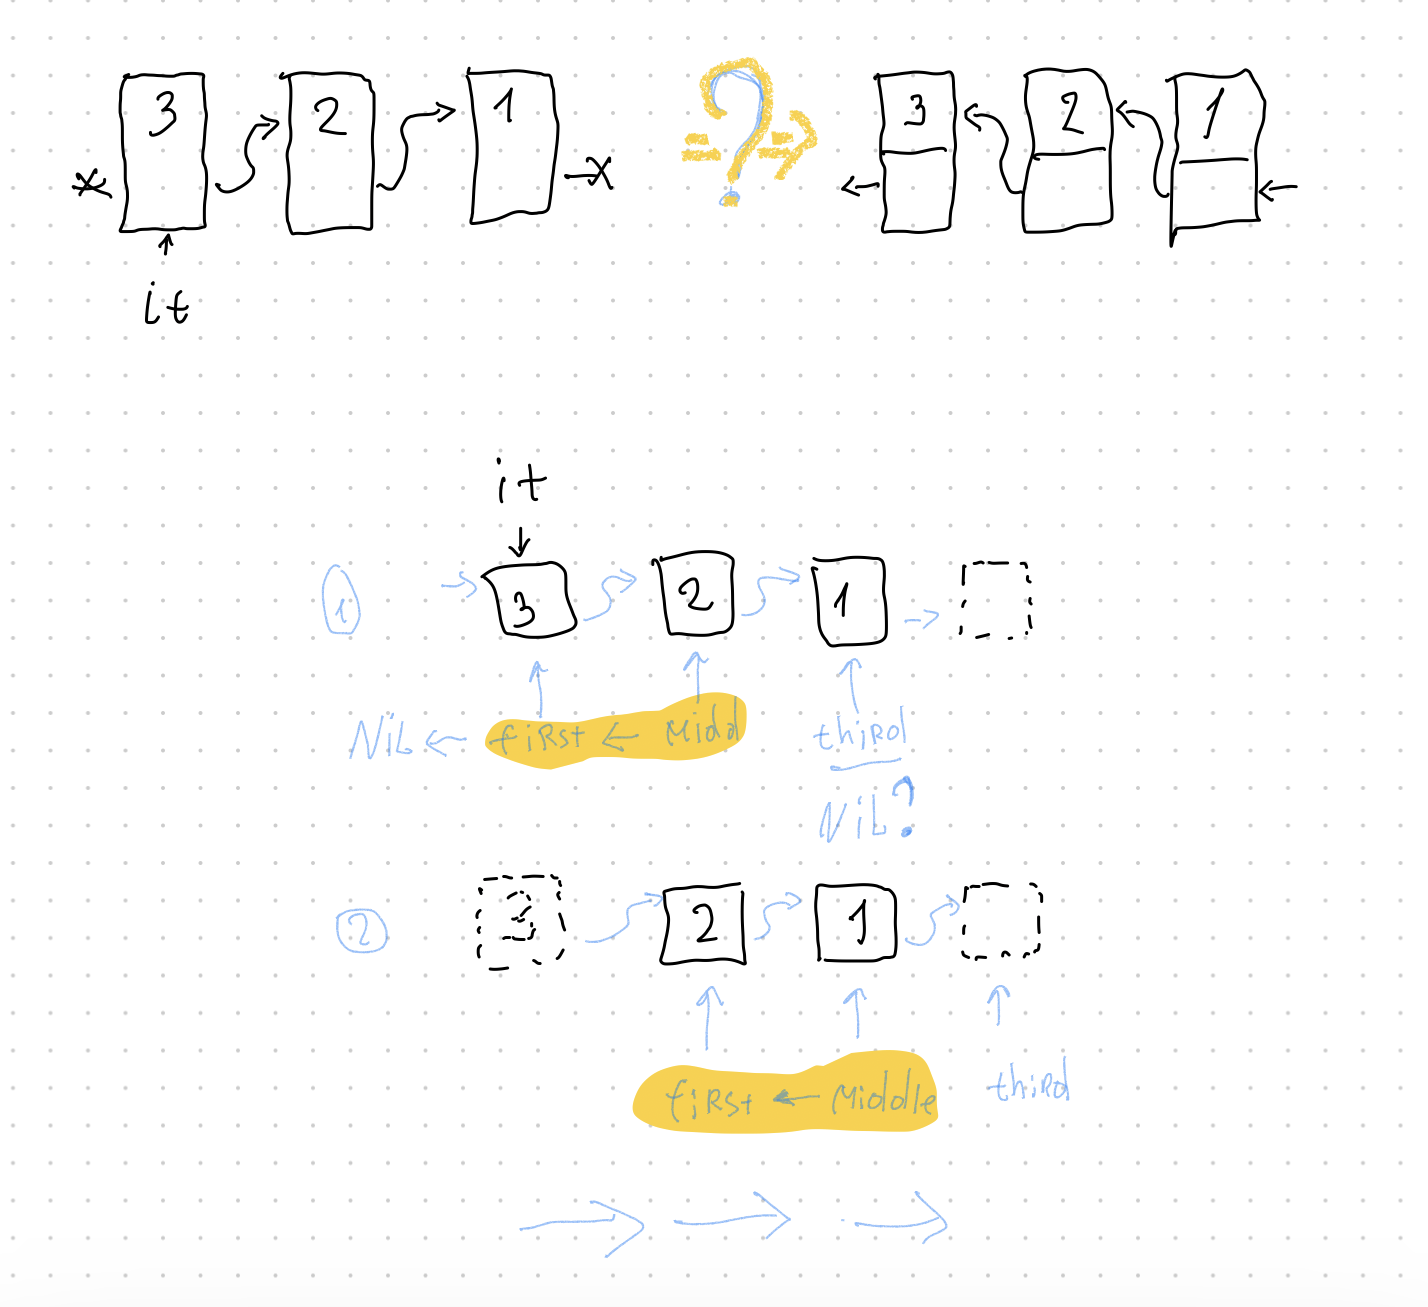 3 2 1 ? 3 2 1
it
it
1 3 2 1
NiL ← fiRst ← Midd third
NiL?
2 3 2 1
fiRst ← Middle third